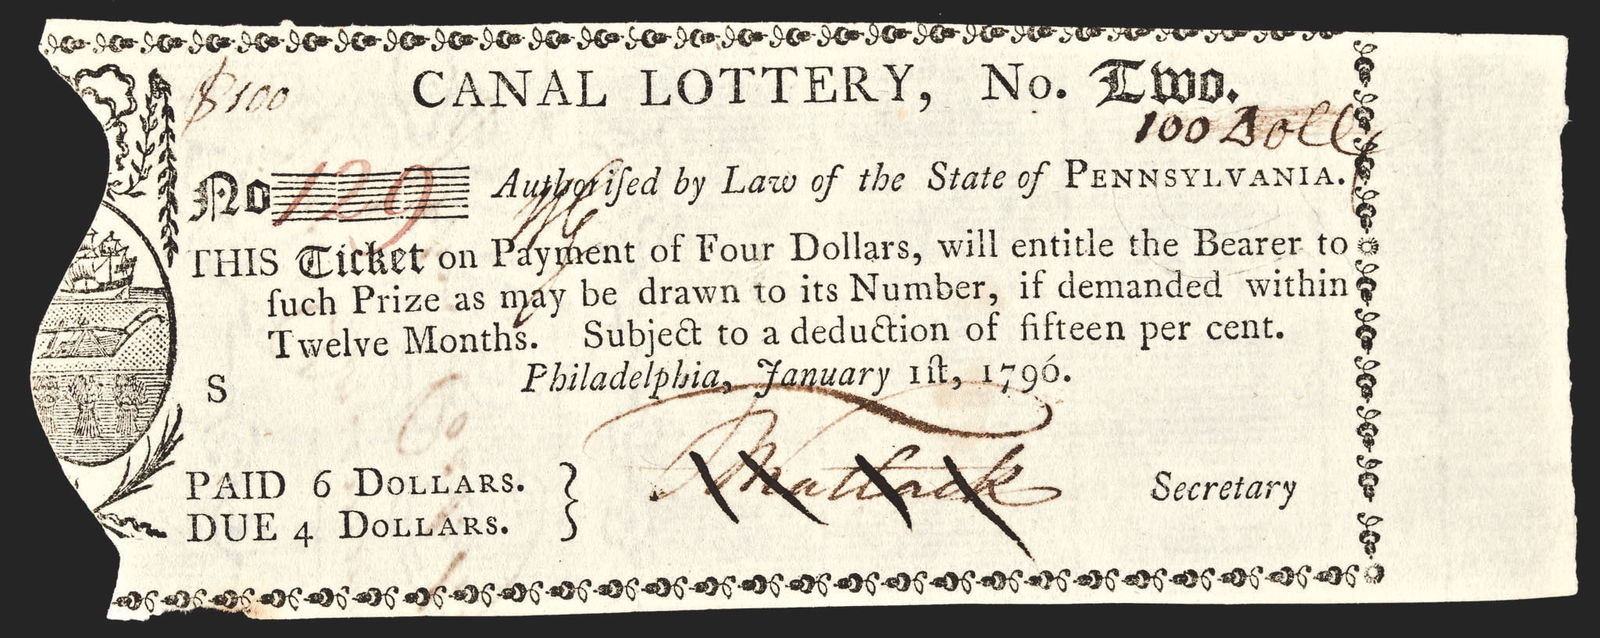 $100
CANAL LOTTERY, No. Two.
100 Doll
No 129 Authoriſed by Law of the State of PENNSYLVANIA.
THIS Ticket on Payment of Four Dollars, will entitle the Bearer to
ſuch Prize as may be drawn to its Number, if demanded within
Twelve Months. Subject to a deduction of fifteen per cent.
Philadelphia, January 1ſt, 1796.
S
PAID 6 DOLLARS.
DUE 4 DOLLARS.
Matlack Secretary